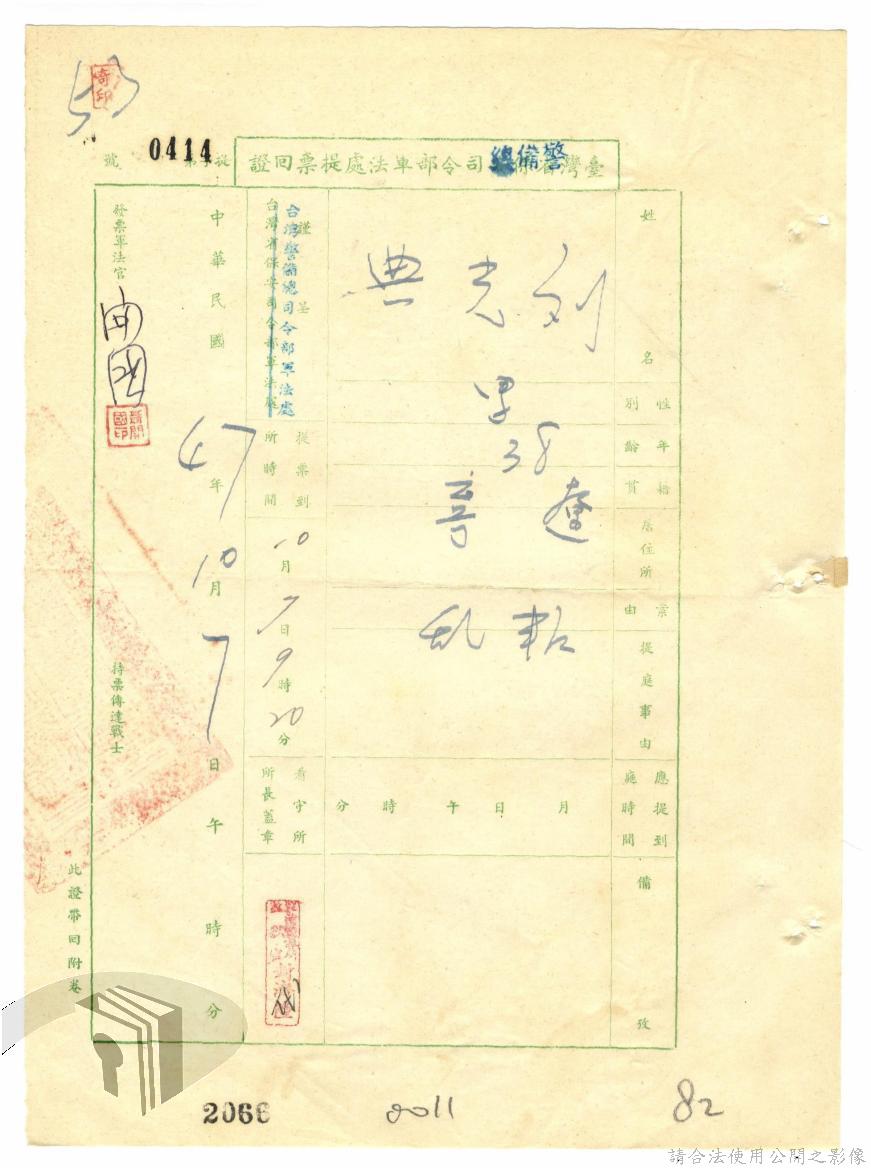 臺灣警備總司令部軍法處提票回證
提字第0414號
姓名
刘光典
性別
男
年齡
38
籍貫
居住所
遼
案由
叛乱
提庭事由
應提到庭時間
月 日 午 時 分
備攷
謹呈
台灣警備總司令部軍法處
台灣省保安司令部軍法處
提票到所時間
10月7日9時20分
看守所所長蓋章
代
中華民國47年10月7日午時分
發票軍法官
持票傳達戰士
此證帶回附卷
2066
2011
82
請合法使用公開之影像